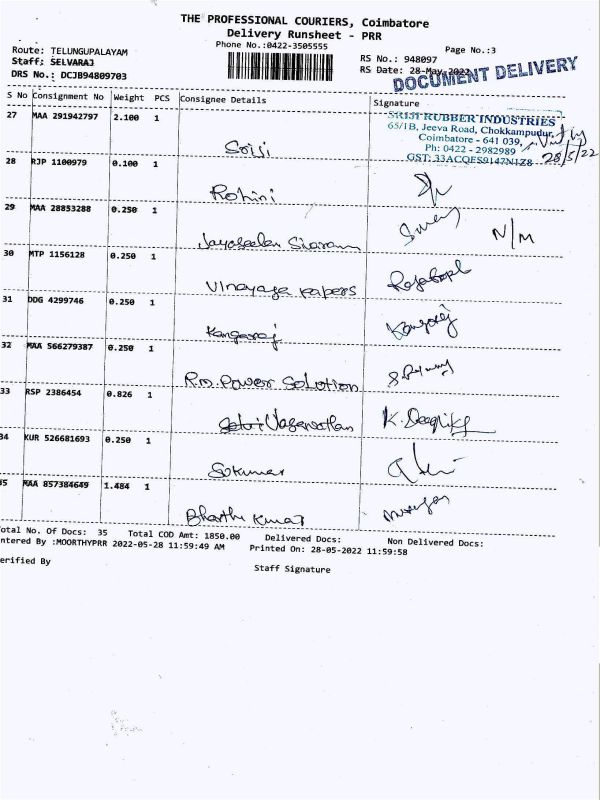 THE PROFESSIONAL COURIERS, Coimbatore
Delivery Runsheet - PRR
Phone No.:0422-3505555
Page No.:3
Route: TELUNGUPALAYAM
Staff: SELVARAJ
DRS No.: DCJB94809703
RS No.: 948097
RS Date: 28-May-2022
DOCUMENT DELIVERY
S No Consignment No Weight PCS Consignee Details Signature
27 MAA 291942797 2.100 1
SRIJI RUBBER INDUSTRIES
65/1B, Jeeva Road, Chokkampudur,
Coimbatore - 641 039,
Ph: 0422 - 2982989
GST: 33ACQES9147N1Z8
28/5/22
Sriji
28 RJP 1100979 0.100 1
Rohini
29 MAA 28853288 0.250 1
N/M
30 MTP 1156128 0.250 1
Vinayaga papers
31 DDG 4299746 0.250 1
Kangaraj
32 MAA 566279387 0.250 1
R.M. Power Solution
33 RSP 2386454 0.826 1
K. Deepika
34 KUR 526681693 0.250 1
Sukumar
35 MAA 857384649 1.484 1
Bharthi Kumar
Total No. Of Docs: 35 Total COD Amt: 1850.00 Delivered Docs: Non Delivered Docs:
Entered By :MOORTHYPRR 2022-05-28 11:59:49 AM Printed On: 28-05-2022 11:59:58
Verified By
Staff Signature